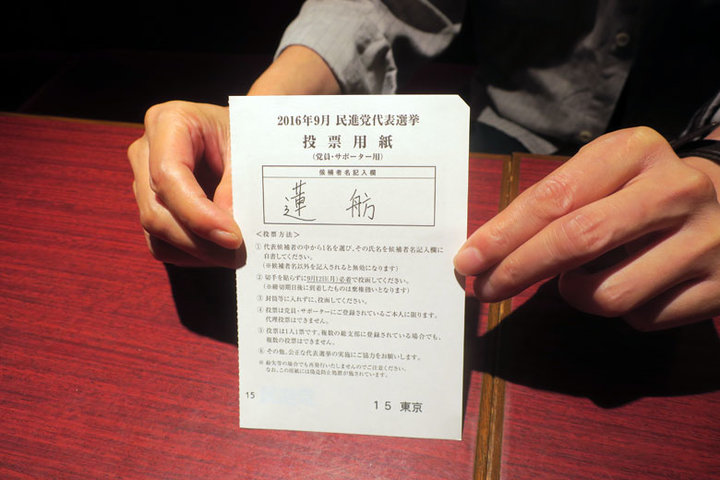 2016年9月 民進党代表選挙
投票用紙
（党員・サポーター用）
候補者名記入欄
蓮舫
＜投票方法＞
① 代表候補者の中から1名を選び、その氏名を候補者名記入欄に
自書してください。
（※候補者名以外を記入されると無効になります）
② 切手を貼らずに9月12日(月)必着で投函してください。
（※締切期日後に到着したものは棄権扱いとなります）
③ 封筒等に入れずに、投函してください。
④ 投票は党員・サポーターにご登録されているご本人に限ります。
代理投票はできません。
⑤ 投票は1人1票です。複数の総支部に登録されている場合でも、
複数の投票はできません。
⑥ その他、公正な代表選挙の実施にご協力をお願いします。
※ 紛失等の場合でも再発行いたしませんのでご注意ください。
なお、この用紙には偽造防止処置が施されています。
15
15 東京